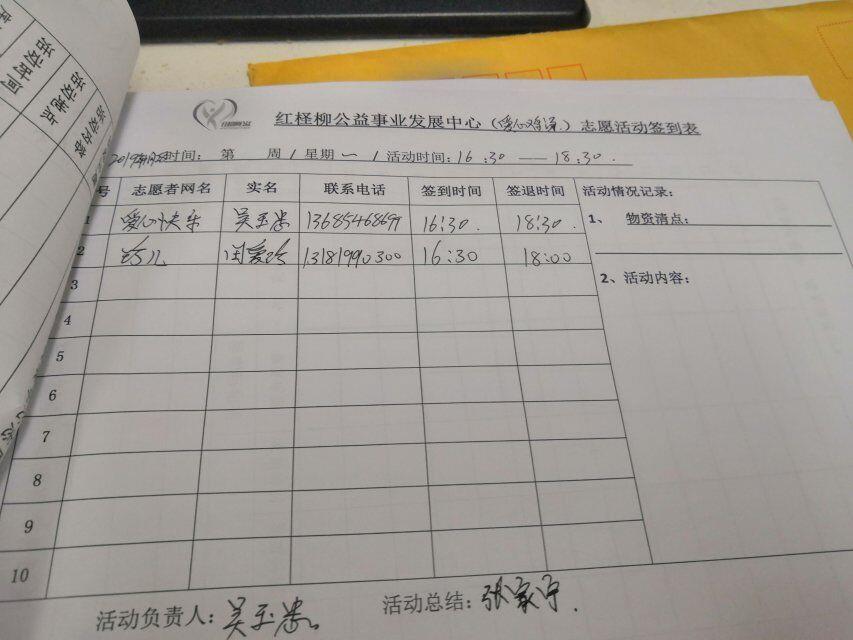 活动时间
活动地点
活动内容
红柽柳公益事业发展中心（爱心 ）志愿活动签到表
2019年 时间： 第 周 / 星期 一 / 活动时间：16:30 —— 18:30.
号 志愿者网名 实名 联系电话 签到时间 签退时间 活动情况记录：
1 爱心快乐 吴玉忠 13685468699 16:30. 18:30. 1、 物资清点：
2 巧儿 闫爱玲 13181990300 16:30 18:00
3 2、活动内容：
4
5
6
7
8
9
10
活动负责人：吴玉忠 活动总结：张家宁.